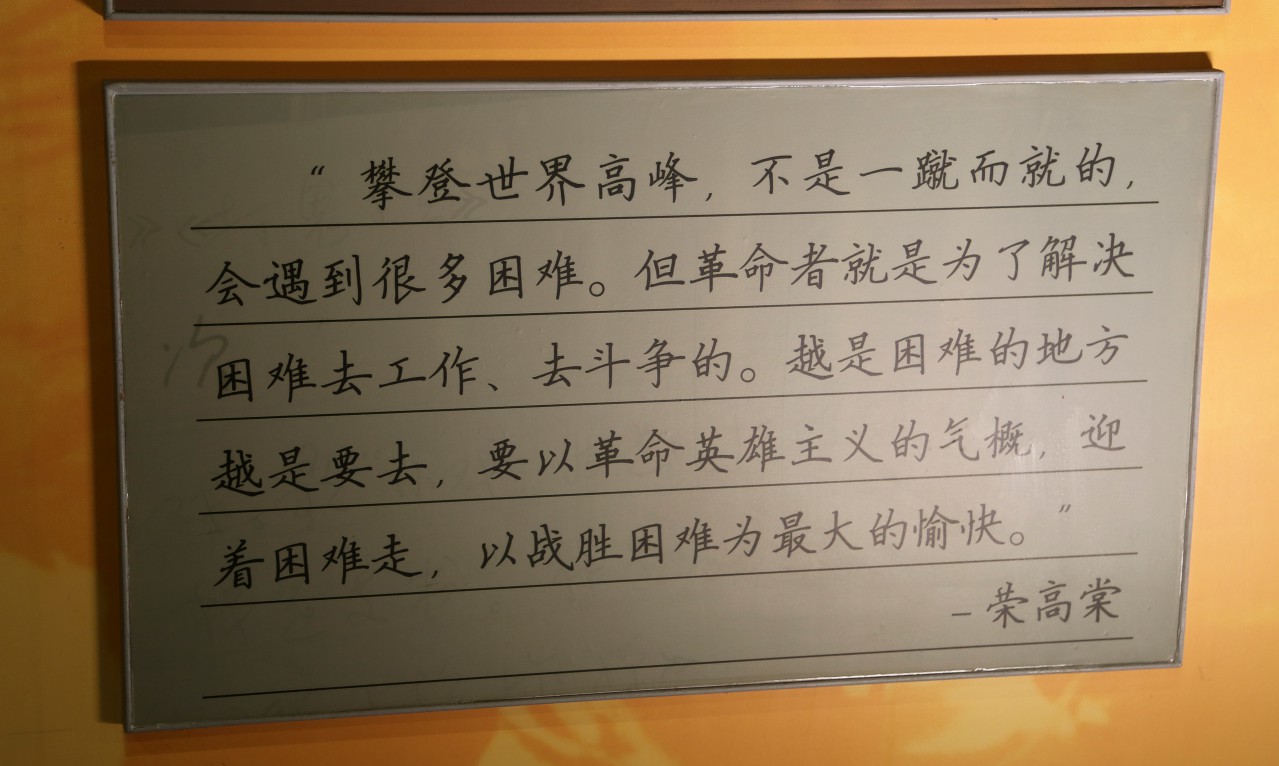 “攀登世界高峰，不是一蹴而就的，
会遇到很多困难。但革命者就是为了解决
困难去工作、去斗争的。越是困难的地方
越是要去，要以革命英雄主义的气概，迎
着困难走，以战胜困难为最大的愉快。”
－荣高棠